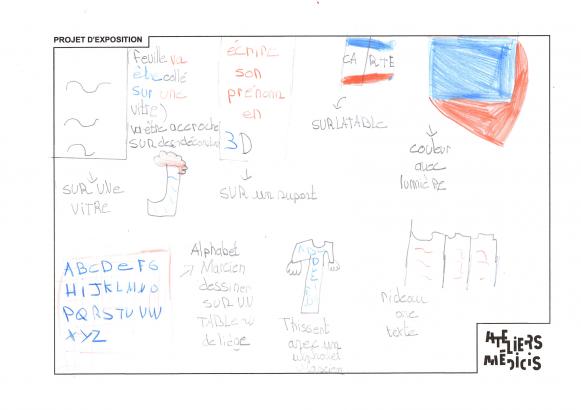 PROJET D'EXPOSITION
feuille va
être collé
sur une
vitre)
va être accroché
SUR des
écrire
son
prénom
en
3D
CA RTE
SUR UNE
VITRE
SUR un suport
SUR LA TABLE
couleur
avec
lumière
ABCDEFG
HIJKLMNO
PQRSTUVW
XYZ
Alphabet
Marcien
dessiner
SUR UN
TABLEAU
de liège
Thissent
avec un
rideau
texte
ATELIERS
MÉDICIS